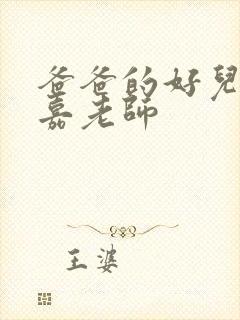 爸爸的好兒
嘉老師
王婆